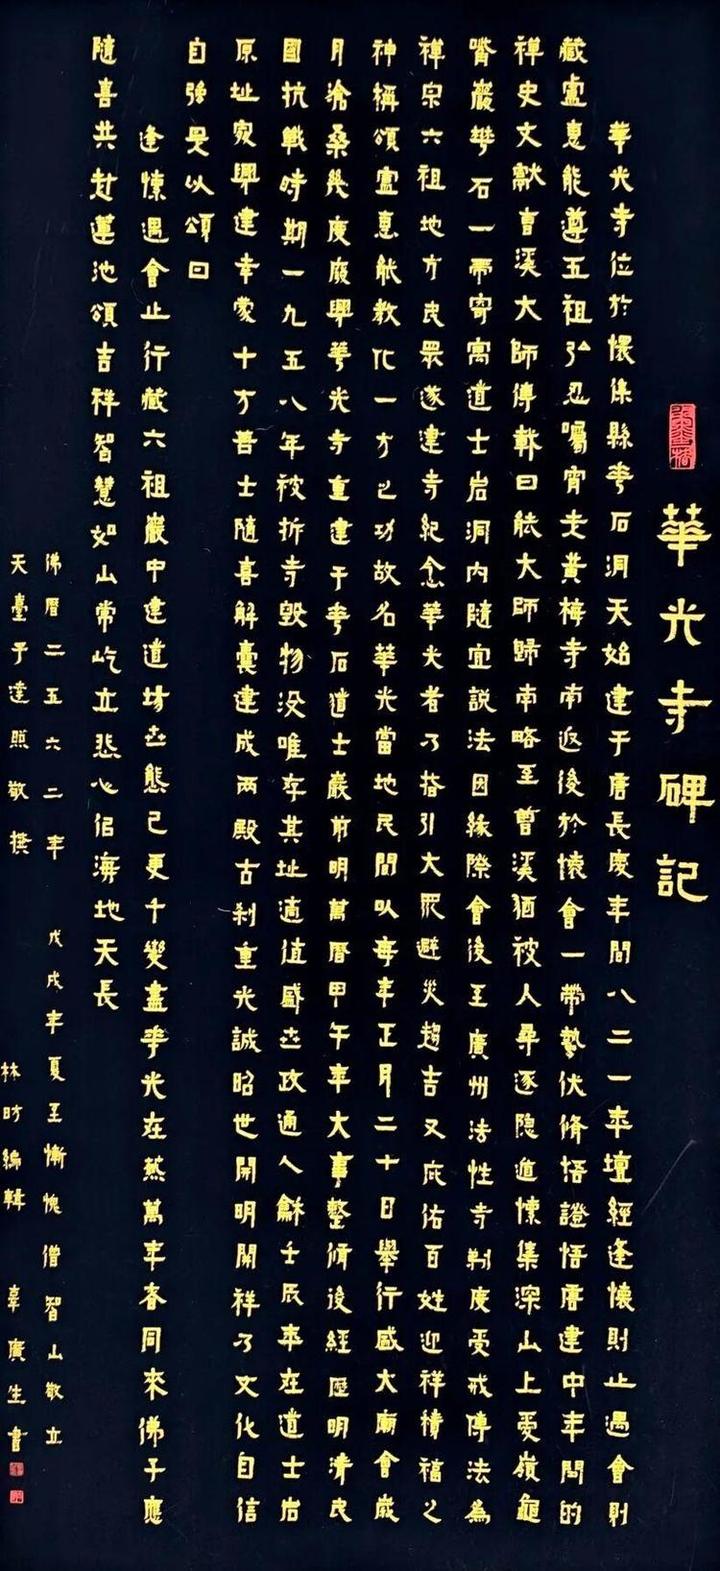 華光寺碑記
華光寺位於懷集縣華石洞天始建于唐長慶年間八二一年壇經逢懷則止遇會則
藏盧惠能尊五祖弘忍囑宵走黃梅寺南返後於懷會一帶勢伏脩悟證悟唐建中年間的
禅史文獻曹溪大師傳載曰能大師歸南略至曹溪猶被人尋逐隐遁懷集深山上爱嶺龜
嘴巖華石一帶寄寓道士岩洞内隨宜説法因緣際會後至廣州法性寺剃度受戒傳法為
禅宗六祖地方民眾遂建寺紀念華光者乃指引大眾避災趨吉又庇佑百姓迎祥積福之
神稱頌盧惠能教化一方之功故名華光當地民間以每年正月二十日舉行盛大廟會歲
月滄桑幾度廢興華光寺重建于華石道士巖前明萬曆甲午年大事整脩後經歷明清民
國抗戰時期一九五八年被拆寺毀物没唯存其址適值盛世政通人龢壬辰年在道士岩
原址宛興建幸蒙十方善士隨喜解囊建成兩殿古剎重光誠昭世開明開祥乃文化自信
自強是以頌曰
逢懷遇會止行藏六祖巖中建道場世態已更千變盡華光在燕萬年香同來佛子應
隨喜共赴蓮池頌吉祥智慧如山常屹立悲心似海地天長
佛曆二五六二年 戊戌年夏至慚愧僧智山敬立
天臺子達照敬撰 林昉編輯 辜廣生書